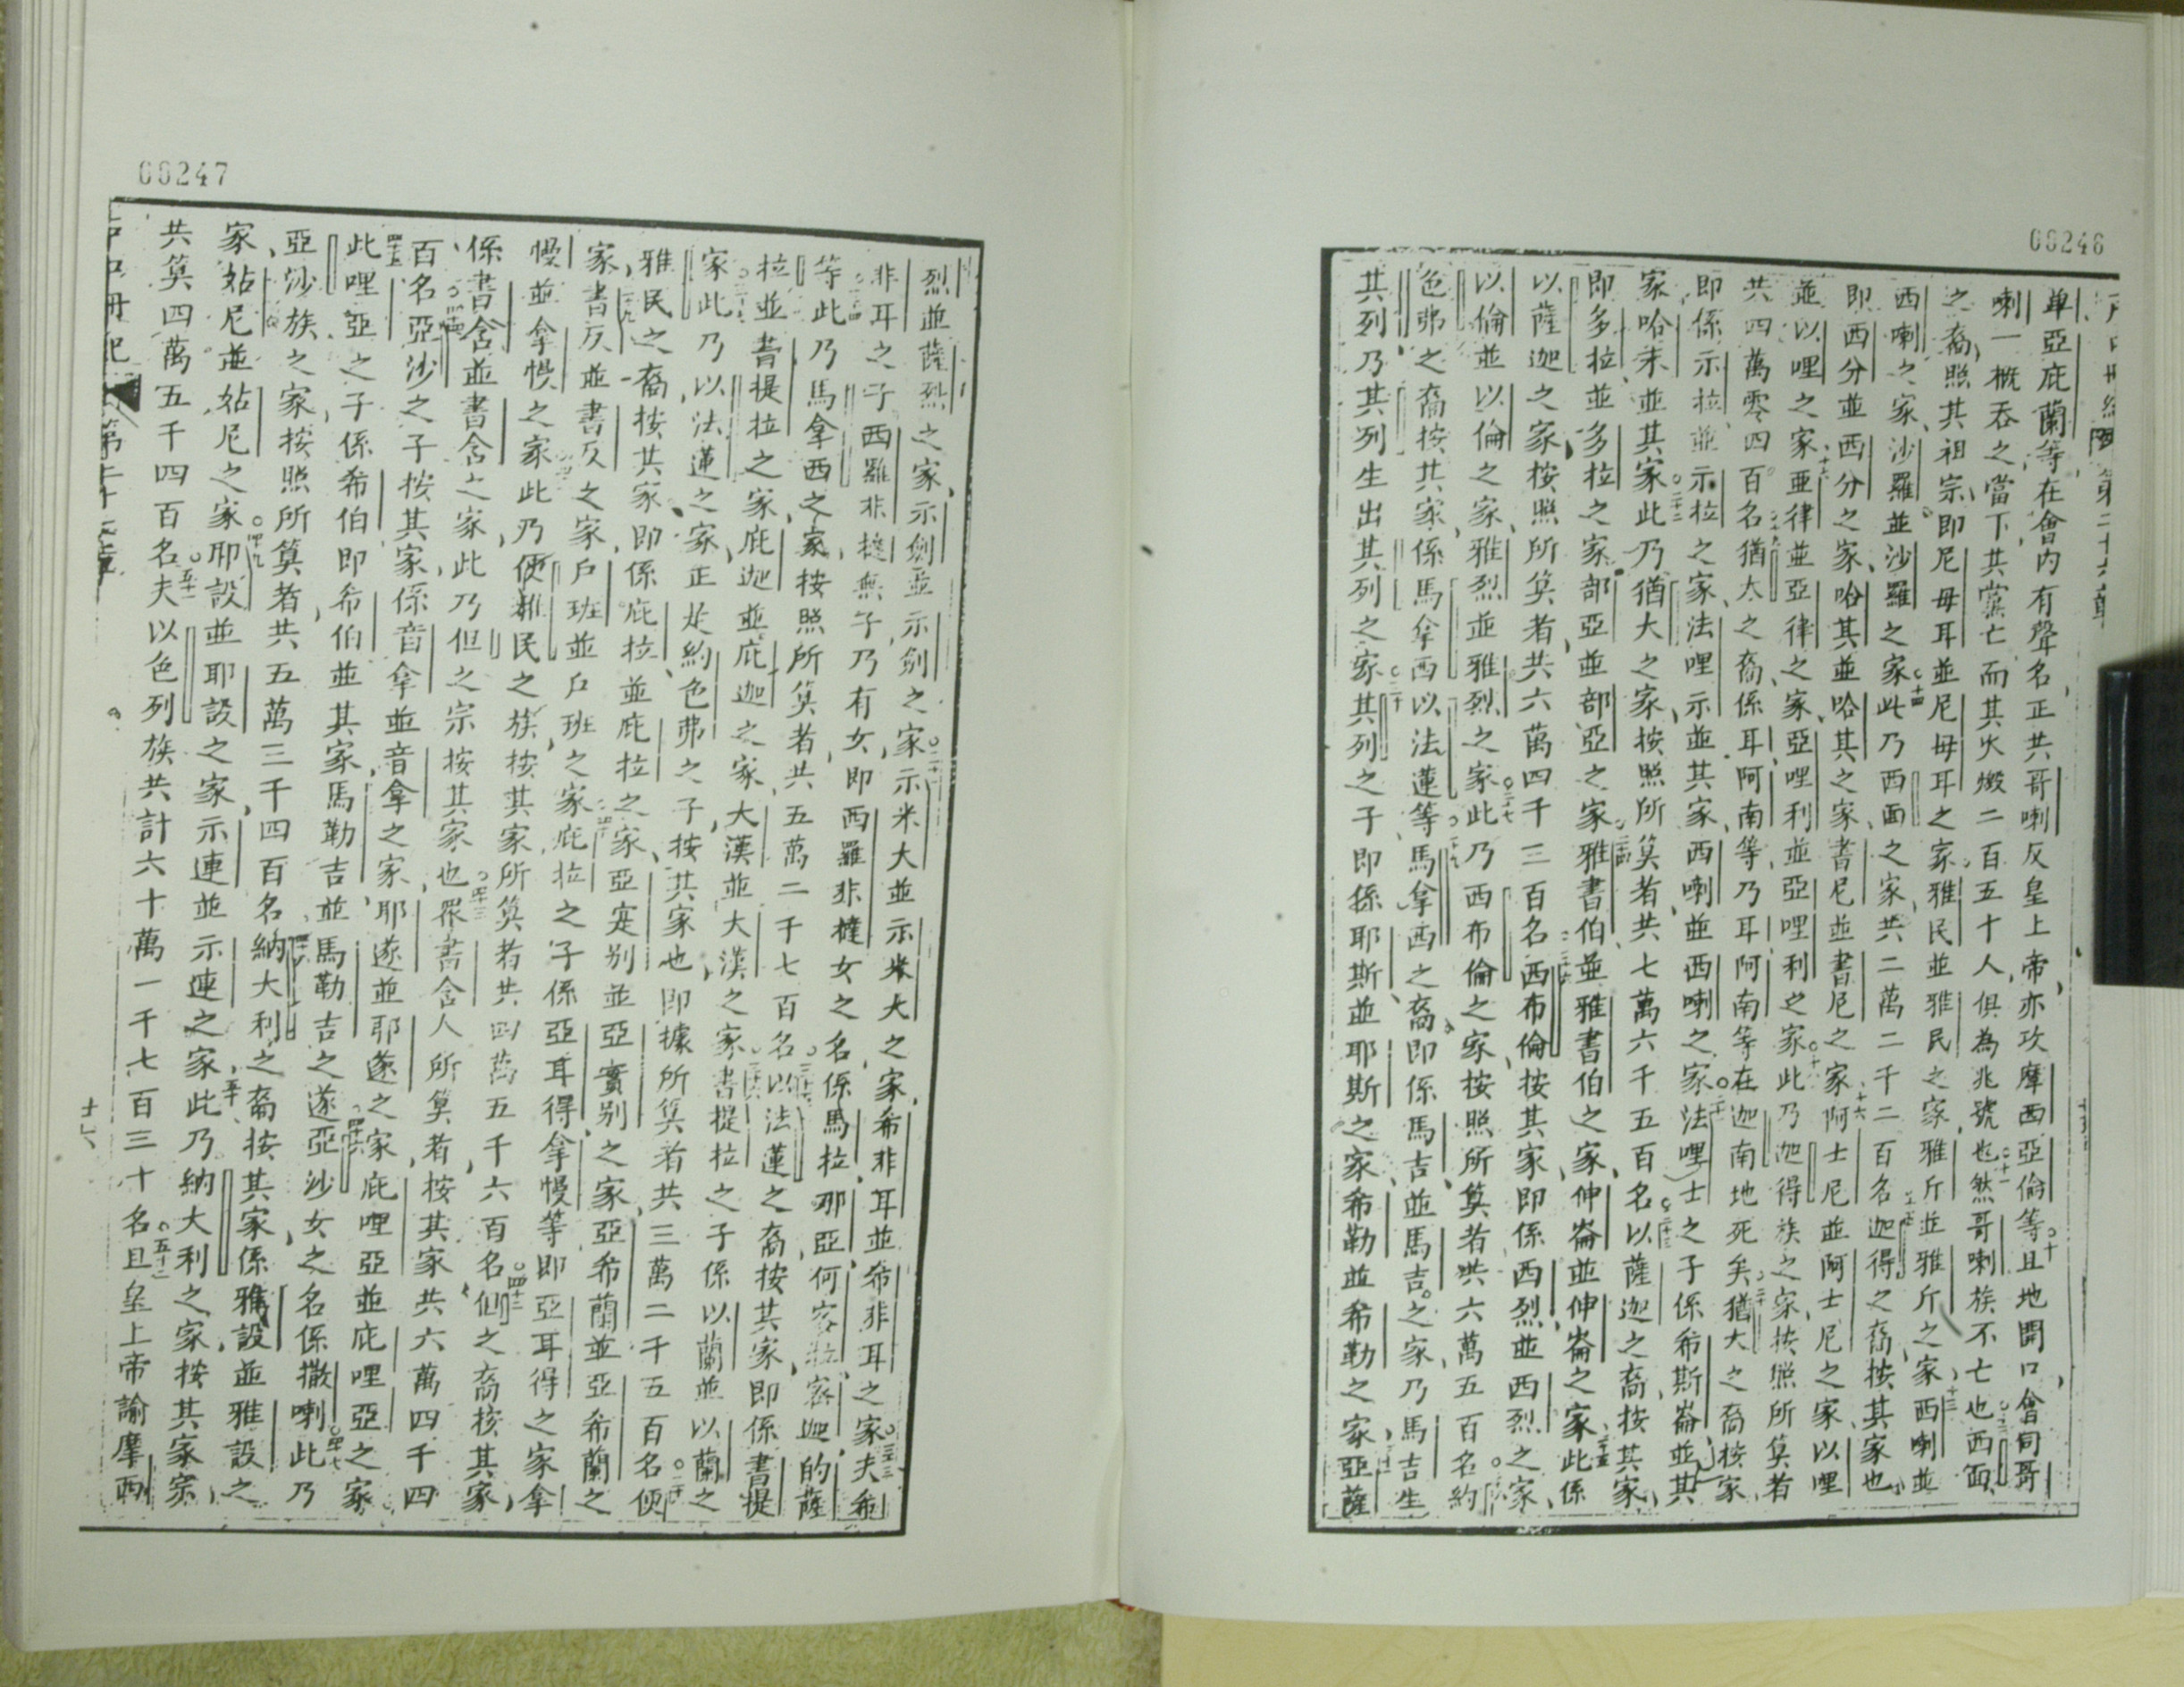 00246
第二十六章
單亞庇蘭等在會內有聲名正共哥喇反皇上帝亦攻摩西亞倫等○十且地開口會同哥
喇一概吞之當下其黨亡而其火燬二百五十人俱為兆號也○十一然哥喇族不亡也○十二西面
之裔照其祖宗即尼毋耳並尼毋耳之家雅民並雅民之家雅斤並雅斤之家○十三西喇並
西喇之家沙羅並沙羅之家○十四此乃西面之家共二萬二千二百名○十五迦得之裔按其家也
即西分並西分之家哈其並哈其之家書尼並書尼之家○十六阿士尼並阿士尼之家以哩
並以哩之家○十七亞律並亞律之家亞哩利並亞哩利之家○十八此乃迦得族之家按照所算者
共四萬零四百名○十九猶大之裔係耳阿南等乃耳阿南等在迦南地死矣○二十猶大之裔按家
即係示拉並示拉之家法哩示並其家西喇並西喇之家○二十一法哩士之子係希斯崙並其
家哈末並其家○二十二此乃猶大之家按照所算者共七萬六千五百名○二十三以薩迦之裔按其家
即多拉並多拉之家部亞並部亞之家○二十四雅書伯並雅書伯之家伸崙並伸崙之家○二十五此係
以薩迦之家按照所算者共六萬四千三百名○二十六西布倫按其家即係西烈並西烈之家
以倫並以倫之家雅烈並雅烈之家○二十七此乃西布倫之家按照所算者共六萬五百名○二十八約
色弗之裔按其家係馬拿西以法蓮等○二十九馬拿西之裔即係馬吉並馬吉之家乃馬吉生
其列乃其列生出其列之家○三十其列之子即係耶斯並耶斯之家希勒並希勒之家○三十一亞薩
00247
烈並薩烈之家示劍並示劍之家○三十二示米大並示米大之家希非耳並希非耳之家○三十三夫希
非耳之子西羅非撻無子乃有女即西羅非撻女之名係馬拉那亞何客拉密迦的薩
等○三十四此乃馬拿西之家按照所算者共五萬二千七百名○三十五以法蓮之裔按其家即係書提
拉並書提拉之家庇迦並庇迦之家大漢並大漢之家○三十六書提拉之子係以蘭並以蘭之
家○三十七此乃以法蓮之家正是約色弗之子按其家也即據所算者共三萬二千五百名○三十八便
雅民之裔按其家即係庇拉並庇拉之家亞寔別並亞實別之家亞希蘭並亞希蘭之
家○三十九書反並書反之家戶班並戶班之家○四十庇拉之子係亞耳得拿慢等即亞耳得之家拿
慢並拿慢之家○四十一此乃便雅民之族按其家所算者共四萬五千六百名○四十二但之裔按其家
係書含並書含之家此乃但之宗按其家也○四十三眾書含人所算者按其家共六萬四千四
百名○四十四亞沙之子按其家係音拿並音拿之家耶遂並耶遂之家庇哩亞並庇哩亞之家
○四十五此哩亞之子係希伯即希伯並其家馬勒吉並馬勒吉之遂○四十六亞沙女之名係撒喇○四十七此乃
亞沙族之家按照所算者共五萬三千四百名○四十八納大利之裔按其家係雅設並雅設之
家姑尼並姑尼之家○四十九耶設並耶設之家示連並示連之家○五十此乃納大利之家按其家宗
共算四萬五千四百名○五十一夫以色列族共計六十萬一千七百三十名○五十二且皇上帝諭摩西
戶口冊紀